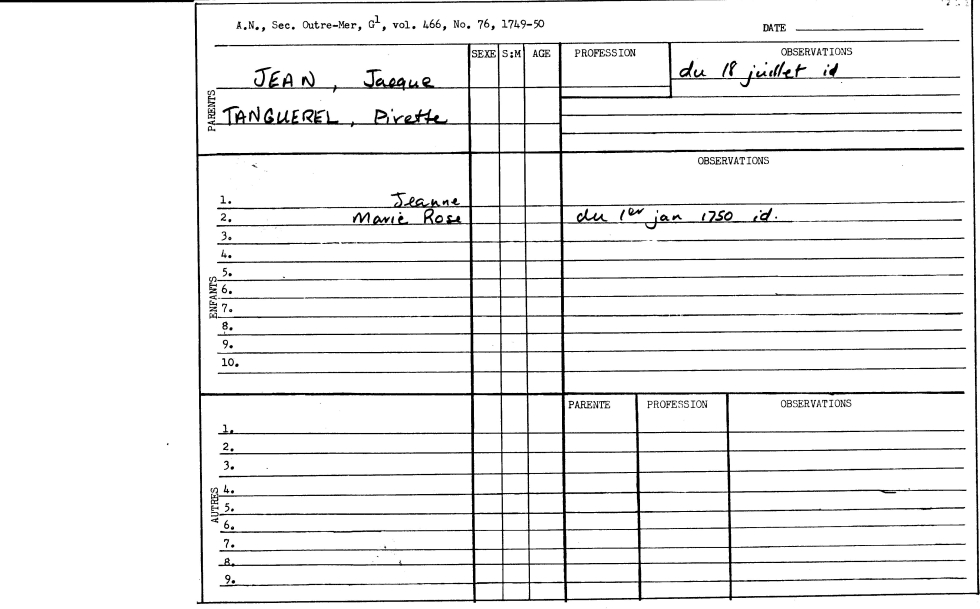 A.N., Sec. Outre-Mer, G1, vol. 466, No. 76, 1749-50 DATE
SEXE S:M AGE PROFESSION OBSERVATIONS
PARENTS
JEAN, Jacque du 18 juillet id
TANGUEREL, Pirette
OBSERVATIONS
ENFANTS
1. Jeanne
2. Marie Rose du 1er jan 1750 id.
3.
4.
5.
6.
7.
8.
9.
10.
PARENTE PROFESSION OBSERVATIONS
AUTRES
1.
2.
3.
4.
5.
6.
7.
8.
9.